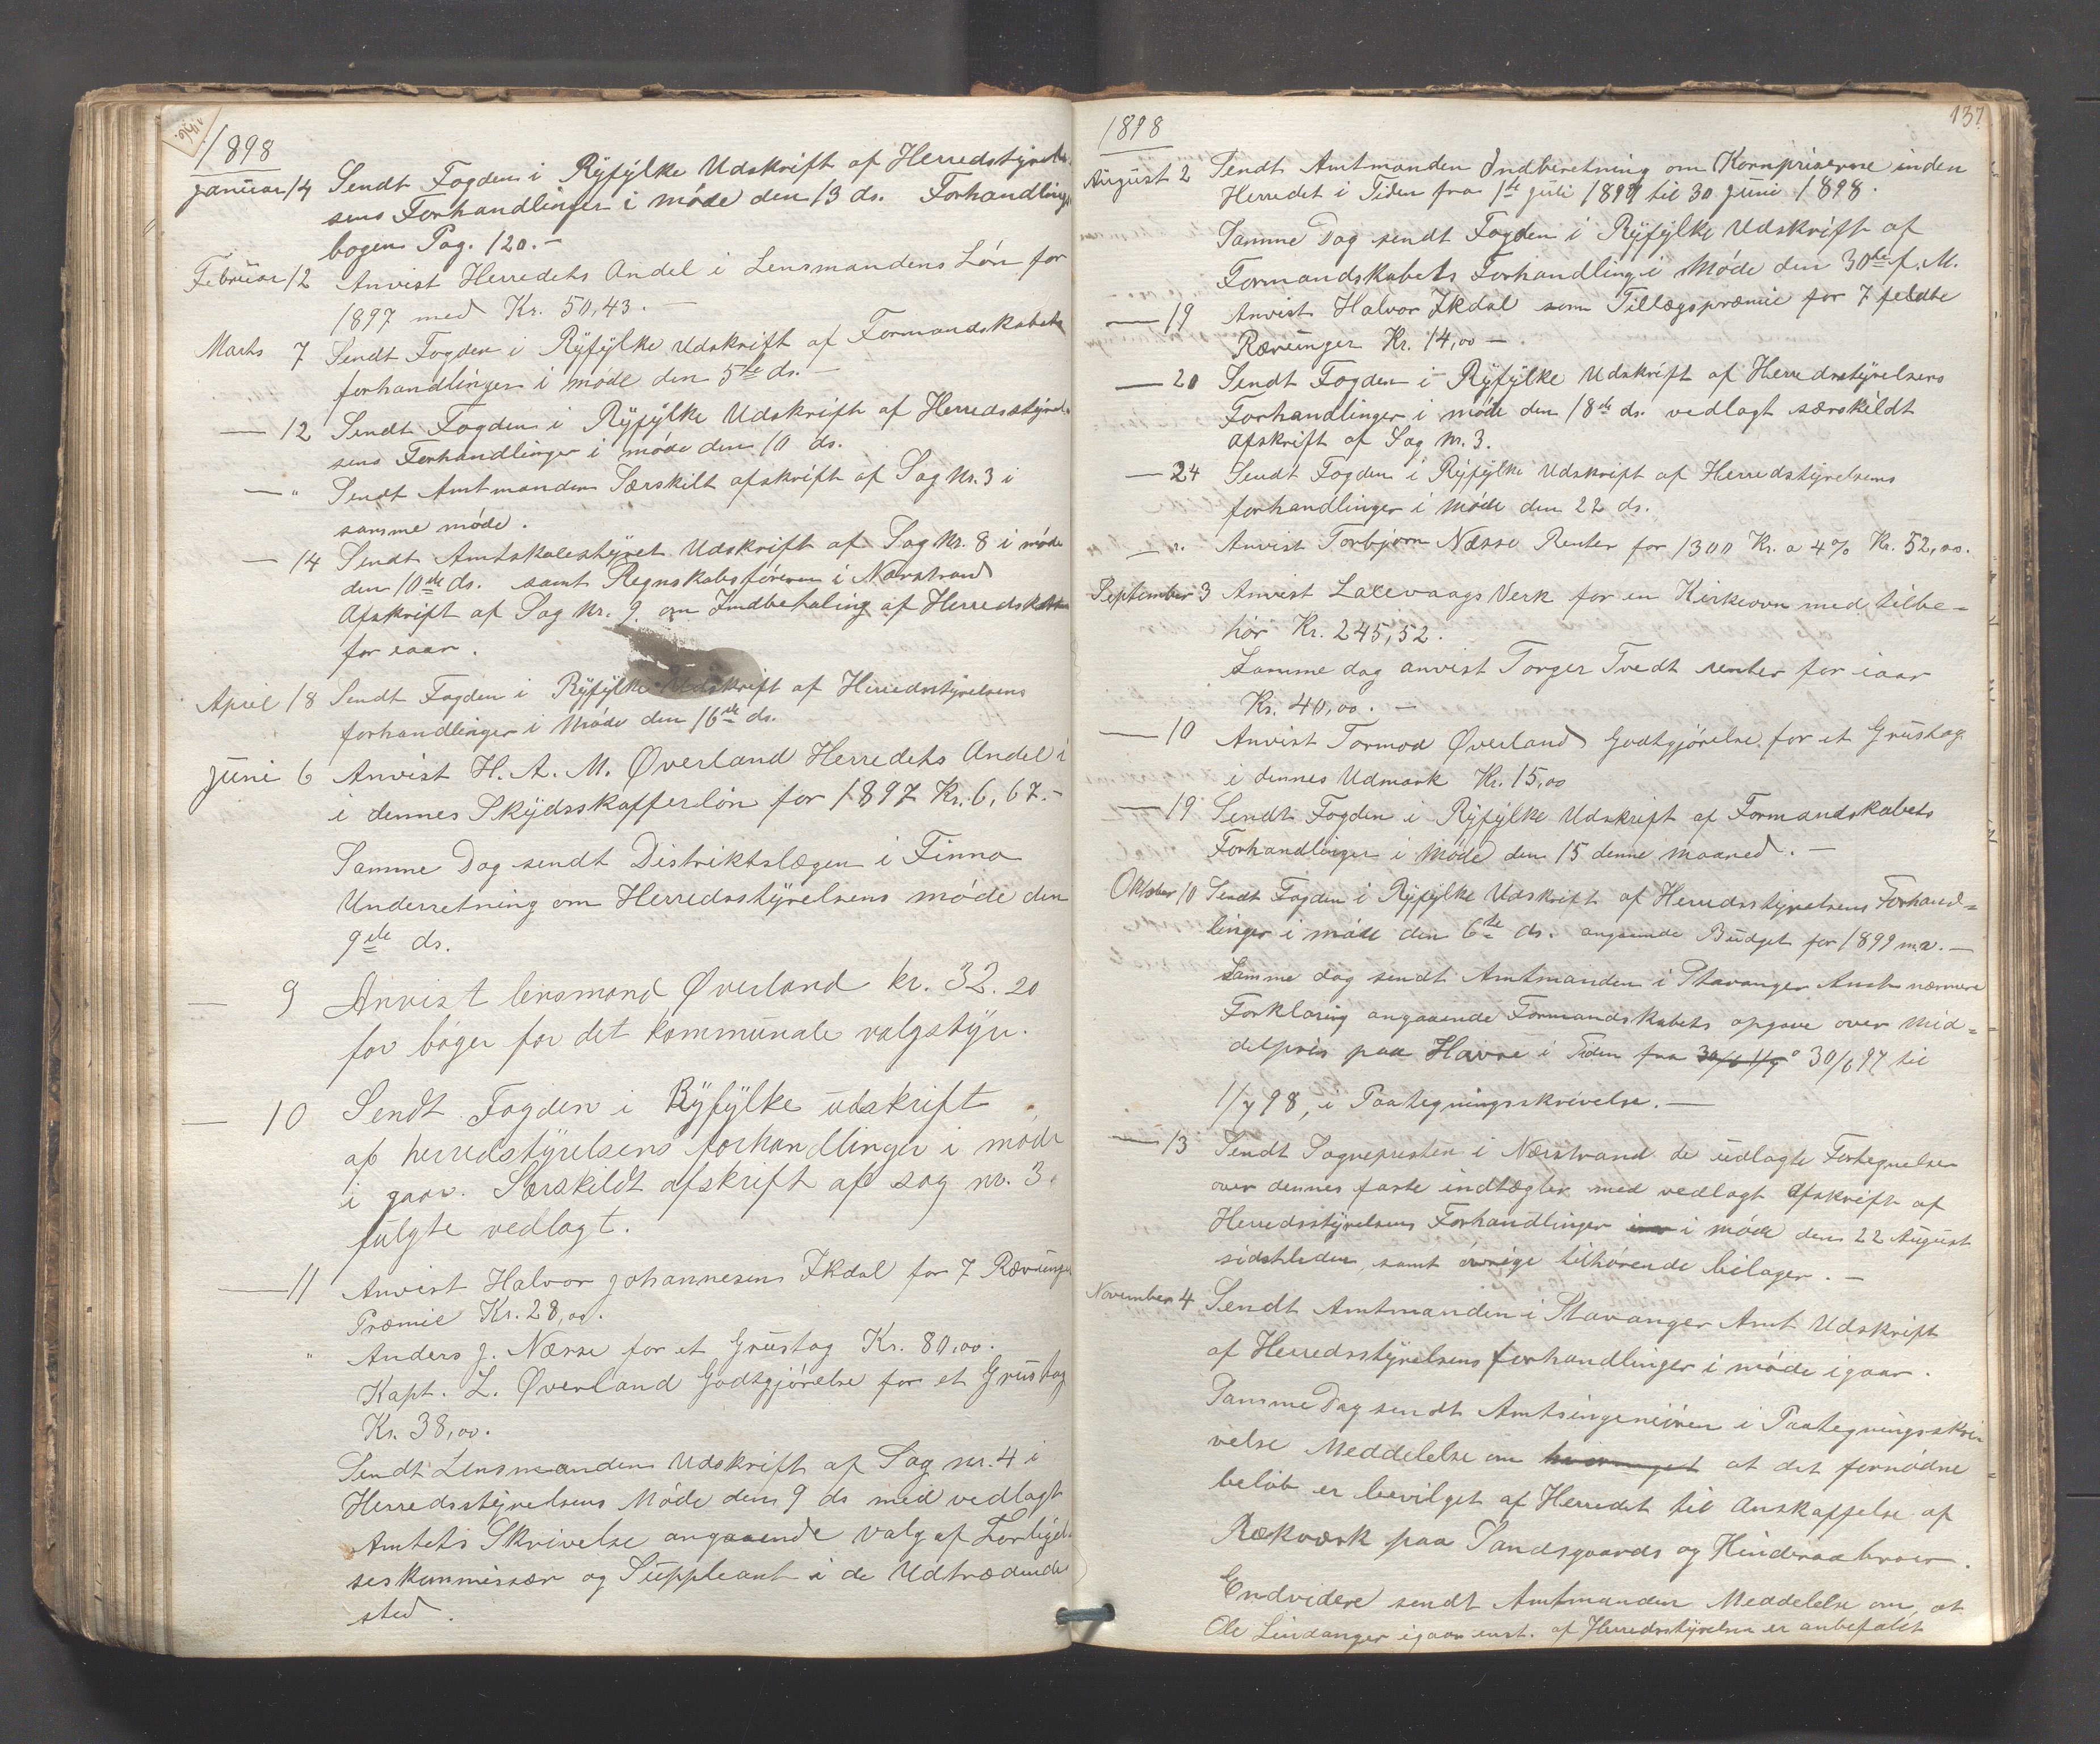 1898
Januar 14 Sendt Fogden i Ryfylke Udskrift af Herredstyrel-
sens Forhandlinger i møde den 13 ds. Forhandlings
bogen Pag. 120.-
Februar 12 Anvist Herredets Andel i Lensmandens Løn for
1897 med Kr. 50,43.-
Marts 7 Sendt Fogden i Ryfylke Udskrift af Formandskabets
forhandlinger i møde den 5te ds. -
— 12 Sendt Fogden i Ryfylke Udskrift af Herredsstyrel-
sens Forhandlinger i møde den 10 ds.
— " Sendt Amtmanden Særskilt afskrift af Sag Nr. 3 i
samme møde.
— 14 Sendt Amtskolestyret Udskrift af Sag Nr. 8 i møde
den 10de ds. samt Regnskabsføreren i Nærstrand
Afskrift af Sag Nr. 9. om Indbetaling af Herredskatten
for iaar.
April 18 Sendt Fogden i Ryfylke Udskrift af Herredsstyrelsens
forhandlinger i Møde den 16de ds.
Juni 6 Anvist H. A. M. Øverland Herredets Andel i
i dennes Skydsskafferløn for 1897 Kr. 6,67.-
Samme Dag sendt Distriktslægen i Finnø
Underretning om Herredsstyrelsens møde den
9de ds.
— 9 Anvist lensmand Øverland kr. 32.20
for bøger for det kommunale valgstyre.
— 10 Sendt Fogden i Ryfylke udskrift
af herredstyrelsens forhandlinger i møde
i gaar. Særskildt afskrift af sag nr. 3.
fulgte vedlagt.
— 11 Anvist Halvor Johannesen Ikdal for 7 Rævunger
Præmie Kr. 28,00.
" Anders J. Næsse for et Grustag Kr. 80,00.
Kapt. L. Øverland Godtgjørelse for et Grustag
Kr. 38,00.
Sendt Lensmanden Udskrift af Sag nr. 4 i
Herredsstyrelsens Møde den 9 ds med vedlagt
Amtets Skrivelse angaaende Valg af Forligel-
seskommissær og Suppleant i de Udtrædendes
sted.
137
1898
August 2 Sendt Amtmanden Indberetning om Kornpriserne inden
Herredet i Tiden fra 1ste Juli 1897 til 30 Juni 1898.
Samme Dag sendt Fogden i Ryfylke Udskrift af
Formandskabets Forhandling i Møde den 30te f. M.
— 19 Anvist Halvor Ikdal som Tillægspræmie for 7 feldte
Rævunger Kr. 14,00 —
— 20 Sendt Fogden i Ryfylke Udskrift af Herredsstyrelsens
Forhandlinger i møde den 18de ds. vedlagt særskildt
afskrift af Sag Nr. 3.
— 24 Sendt Fogden i Ryfylke Udskrift af Herredstyrelsens
forhandlinger i Møde den 22 ds.
— " Anvist Torbjørn Næsse Renter for 1300 Kr. a 4% Kr. 52,00.
September 3 Anvist Lallevaags Verk for en Kirkeovn med tilbe-
hør Kr. 245,52.
Samme dag anvist Torger Tvedt renter for iaar
Kr. 40,00. -
— 10 Anvist Tormod Øverland Godtgjørelse for et Grustag
i dennes Udmark Kr. 15,00
— 19 Sendt Fogden i Ryfylke Udskrift af Formandskabets
Forhandlinger i Møde den 15 denne maaned. -
Oktober 10 Sendt Fogden i Ryfylke Udskrift af Herredsstyrelsens Forhand-
linger i møde den 6te ds. angaaende Budget for 1899 m.v. -
Samme dag sendt Amtmanden i Stavanger Amt nærmere
Forklaring angaaende Formandskabets opgave over Mid-
delpris paa Havre i Tiden fra 30/6 97 til
1/7 98, i Paategningsskrivelse. —
— 13 Sendt Sognepresten i Nærstrand de udlagte Fortegnelser
over dennes faste indtægter med vedlagt Afskrift af
Herredsstyrelsens Forhandlinger i møde den 22 August
sidstleden, samt øvrige tilhørende bilager. -
November 4 Sendt Amtmanden i Stavanger Amt Udskrift
af Herredsstyrelsens forhandlinger i møde igaar.
Samme Dag sendt Amtsingeniøren i Paategningsskri-
velse Meddelelse om at det fornødne
beløb er bevilget af Herredet til Anskaffelse af
Rækværk paa Sandsgaards og Hinderaabroer.
Endvidere sendt Amtmanden Meddelelse om, at
Ole Lindanger igaar enst. af Herredsstyrelsen er anbefalet